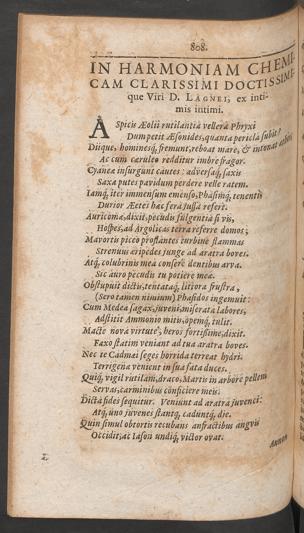 808.
IN HARMONIAM CHEMI-
CAM CLARISSIMI DOCTISSIMI-
que Viri D. LAGNEI, ex inti-
mis intimi.
ASpicis Æolii rutilantia vellera Phryxi
Dum petit Æsonides, quanta pericla subit!
Diique, hominesq́, fremunt, reboat mare, & intonat
Ac cum cæruleo redditur imbre fragor.
Cyaneæ insurgunt cautes: adversaq́, saxis
Saxa putes pavidum perdere velle ratem.
Iamq́, iter immensum emenso, Phasimq́, tenenti
Durior Æetei hæc fera jussa refert.
Auricoma, dixit, pecudis fulgentia si vis,
Hospes, ad Argolicas terra referre domos;
Mavortis piceo proflantes turbine flammas
Strenuus æripedes junge ad aratra boves.
Atq́, colubrinis mea consere dentibus arva.
Sic auro pecudis tu potiere meæ.
Obstupuit dictis, tentataq́, litiora frustra,
(Sero tamen nimium) Phasidos ingemuit:
Cum Medea sagax, juveni, miserata labores,
Adstitit Ammonio mitis, opemq́, tulit.
Macte nova virtute, heros fortissime, dixit.
Faxo statim veniant ad tua aratra boves.
Nec te Cadmei seges horrida terreat hydri.
Terrigenæ venient in sua fata duces.
Quiq́, vigil rutilam, draco, Martis in arbore pellem
Servas, carminibus conficiere meis.
Dicta fides sequitur. Veniunt ad aratra juvenci:
Atq́, uno juvenes stantq́, caduntq́, die.
Quin simul obtortis recubans anfractibus anguis
Occidit; ac Iason undiq́, victor ovat.